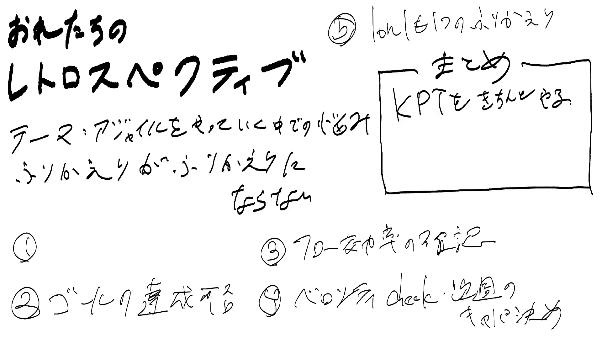 おれたちの
レトロスペクティブ
テーマ：アジャイルをやっていく中での悩み
ふりかえりがふりかえりに
ならない
①
② ゴール達成
③ フロー効率の
④ ベロシティcheck・次週の
キャパ決め
⑤ のふりかえり
まとめ
KPTをきちんとやる